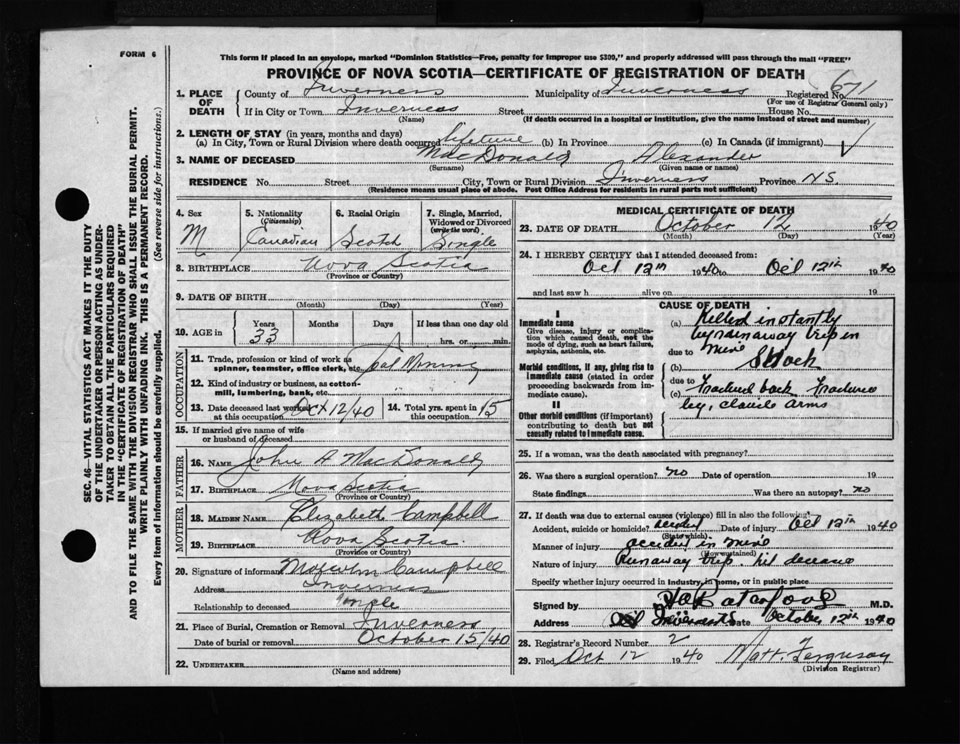 FORM 6
This form if placed in an envelope, marked "Dominion Statistics—Free, penalty for improper use $300," and properly addressed will pass through the mail "FREE"
PROVINCE OF NOVA SCOTIA—CERTIFICATE OF REGISTRATION OF DEATH
671
1. PLACE OF DEATH
County of Inverness Municipality of Inverness Registered No.
(For use of Registrar General only)
If in City or Town Inverness Street House No.
(Name) (If death occurred in a hospital or institution, give the name instead of street and number)
2. LENGTH OF STAY (in years, months and days)
(a) In City, Town or Rural Division where death occurred lifetime (b) In Province (c) In Canada (if immigrant)
3. NAME OF DECEASED MacDonald Alexander
(Surname) (Given name or names)
RESIDENCE No. Street City, Town or Rural Division Inverness Province N.S.
(Residence means usual place of abode. Post Office Address for residents in rural parts not sufficient)
SEC. 46—VITAL STATISTICS ACT MAKES IT THE DUTY
OF THE UNDERTAKER OR PERSON ACTING AS UNDER-
TAKER TO OBTAIN ALL THE PARTICULARS REQUIRED
IN THE "CERTIFICATE OF REGISTRATION OF DEATH"
AND TO FILE THE SAME WITH THE DIVISION REGISTRAR WHO SHALL ISSUE THE BURIAL PERMIT.
WRITE PLAINLY WITH UNFADING INK. THIS IS A PERMANENT RECORD.
Every item of information should be carefully supplied. (See reverse side for instructions.)
4. Sex M
5. Nationality (Citizenship) Canadian
6. Racial Origin Scotch
7. Single, Married, Widowed or Divorced (write the word) Single
8. BIRTHPLACE Nova Scotia
(Province or Country)
9. DATE OF BIRTH
(Month) (Day) (Year)
10. AGE in Years Months Days If less than one day old
33 hrs. or min.
OCCUPATION
11. Trade, profession or kind of work as
spinner, teamster, office clerk, etc.
12. Kind of industry or business, as cotton-
mill, lumbering, bank, etc.
13. Date deceased last worked
at this occupation Oct 12/40
14. Total yrs. spent in
this occupation 15
15. If married give name of wife
or husband of deceased
FATHER
16. NAME John A MacDonald
17. BIRTHPLACE Nova Scotia
(Province or Country)
MOTHER
18. MAIDEN NAME Elizabeth Campbell
19. BIRTHPLACE Nova Scotia.
(Province or Country)
20. Signature of informant Malcolm Campbell
Address Inverness
Relationship to deceased Uncle
21. Place of Burial, Cremation or Removal Inverness
Date of burial or removal October 15/40
22. UNDERTAKER
(Name and address)
MEDICAL CERTIFICATE OF DEATH
23. DATE OF DEATH October 12 1940
(Month) (Day) (Year)
24. I HEREBY CERTIFY that I attended deceased from:
Oct 12th 1940 to Oct 12th 1940
and last saw h alive on 19
CAUSE OF DEATH
I
Immediate cause
Give disease, injury or complica-
tion which caused death, not the
mode of dying, such as heart failure,
asphyxia, asthenia, etc.
Morbid conditions, if any, giving rise to
immediate cause (stated in order
proceeding backwards from im-
mediate cause).
II
Other morbid conditions (if important)
contributing to death but not
causally related to immediate cause.
(a) Killed instantly
by runaway trip in
due to mine
(b) Shock
due to
(c) Fractured back Fractured
leg, arms
25. If a woman, was the death associated with pregnancy?
26. Was there a surgical operation? no Date of operation 19
State findings Was there an autopsy? no
27. If death was due to external causes (violence) fill in also the following:
Accident, suicide or homicide? accident Date of injury Oct 12th 1940
(State which)
Manner of injury accident in mine
(How sustained)
Nature of injury Runaway trip his decease
Specify whether injury occurred in industry, in home, or in public place
Signed by M.D.
Address Inverness Date October 12th 1940
28. Registrar's Record Number 2
29. Filed Oct 12 1940 Matt. Ferguson
(Division Registrar)